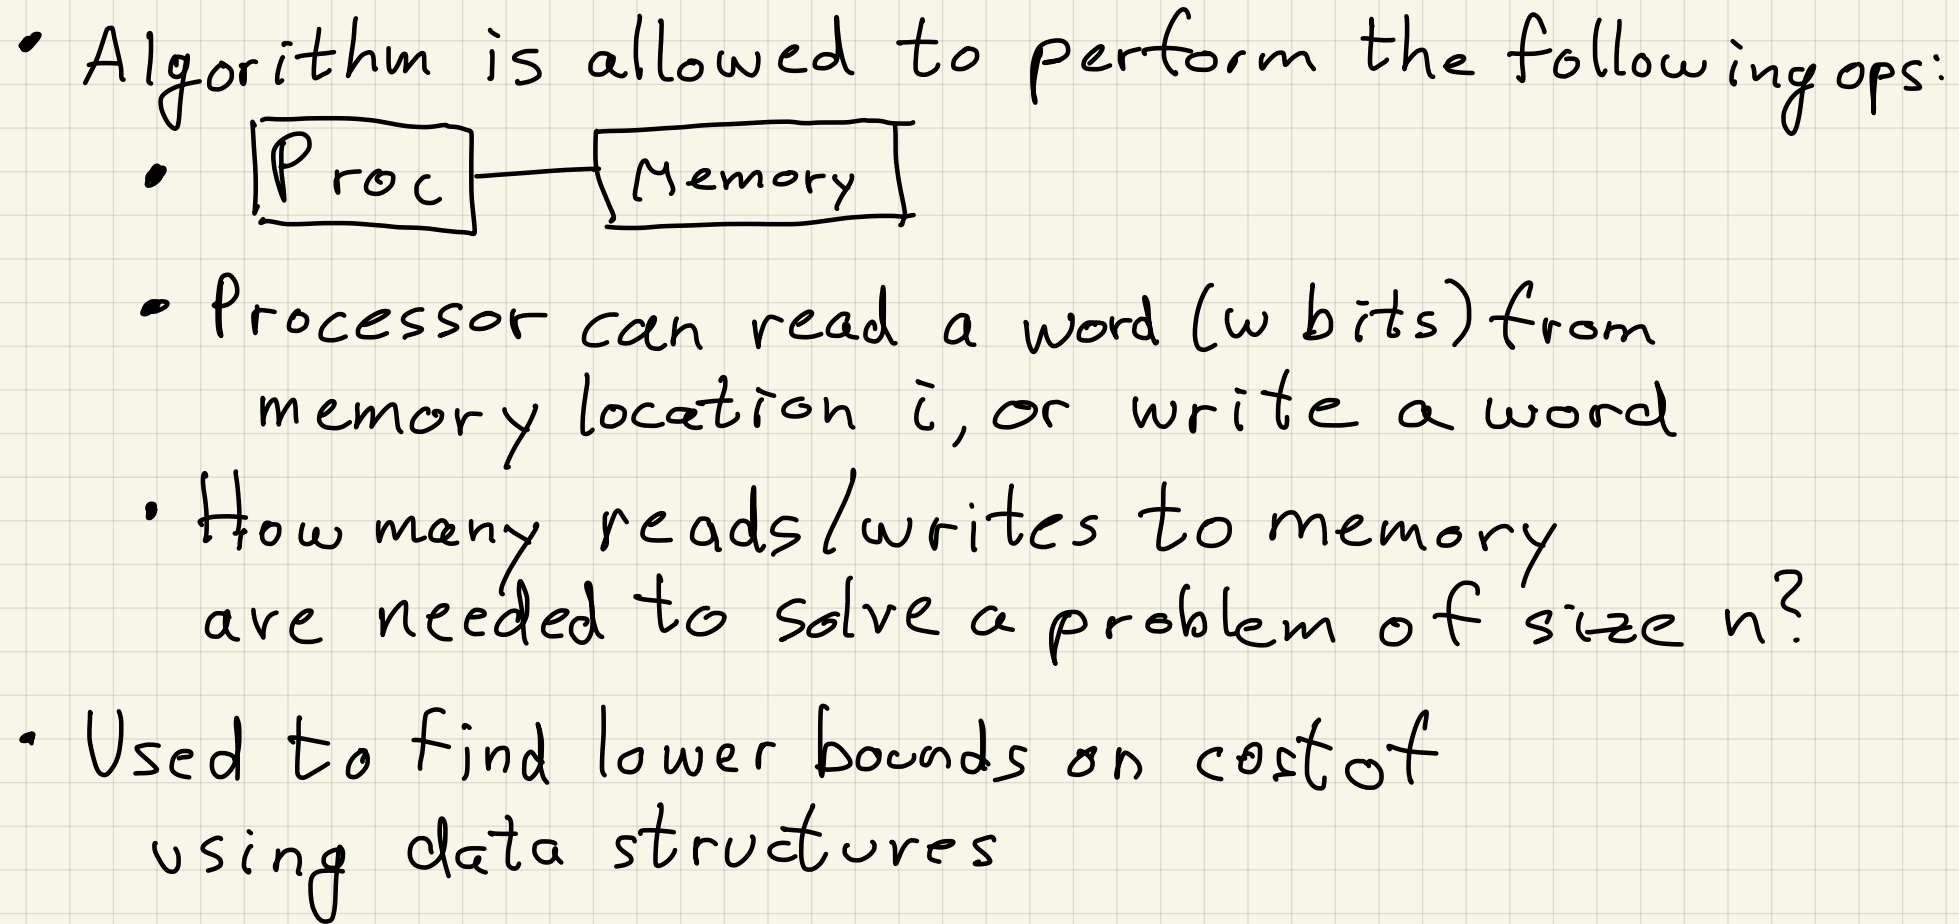 • Algorithm is allowed to perform the following ops:
• Proc Memory
• Processor can read a word (w bits) from
memory location i, or write a word
• How many reads/writes to memory
are needed to solve a problem of size n?
• Used to find lower bounds on cost of
using data structures